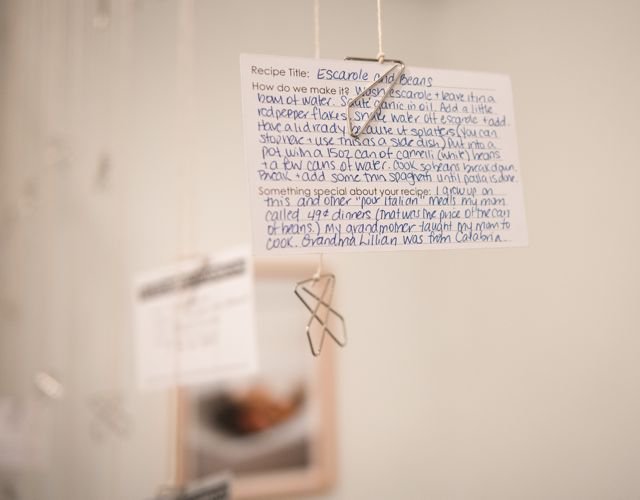 Recipe Title: Escarole and Beans
How do we make it? Wash escarole + leave it in a
bowl of water. Saute garlic in oil. Add a little
red pepper flakes, shake water off escarole + add.
Have a lid ready because it splatters (you can
stop here + use this as a side dish) Put into a
pot with a 15oz can of cannelli (white) beans
+ a few cans of water. Cook so beans break down.
Break + add some thin spaghetti until pasta is done.
Something special about your recipe: I grew up on
this and other "poor Italian" meals my mom
called 49¢ dinners (that was the price of the can
of beans.) My grandmother taught my mom to
cook. Grandma Lillian was from Calabria...